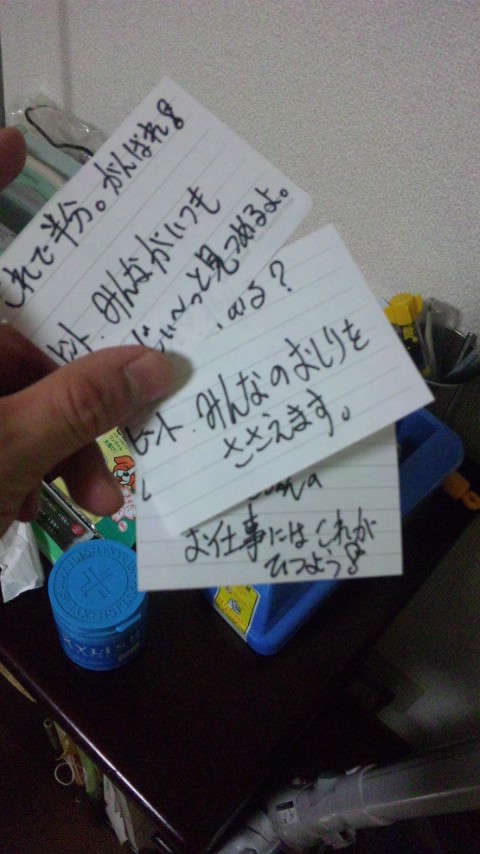 これで半分。がんばれ!
ヒント. みんながいつも
じぃ〜っと見つめるよ。
ある?
ヒント. みんなのおしりを
ささえます。
お仕事にはこれが
ひつよう!
XYLISH